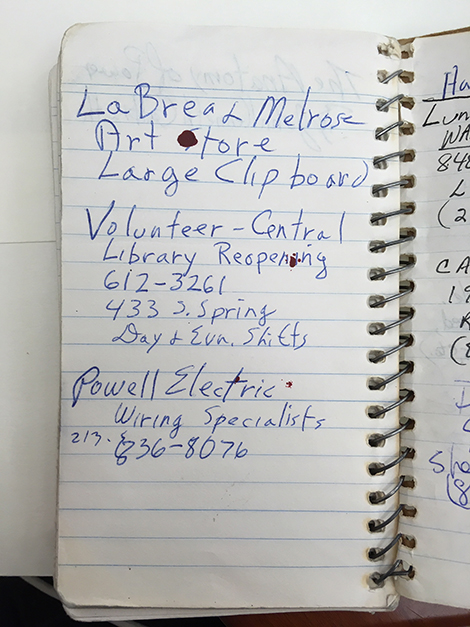 La Brea & Melrose
Art Store
Large Clipboard
Volunteer - Central
Library Reopening
612-3261
433 S. Spring
Day & Evn. Shifts
Powell Electric
Wiring Specialists
213. 836-8076
Ha
Lun
WA
848
L
(2
CA
19
R
(8